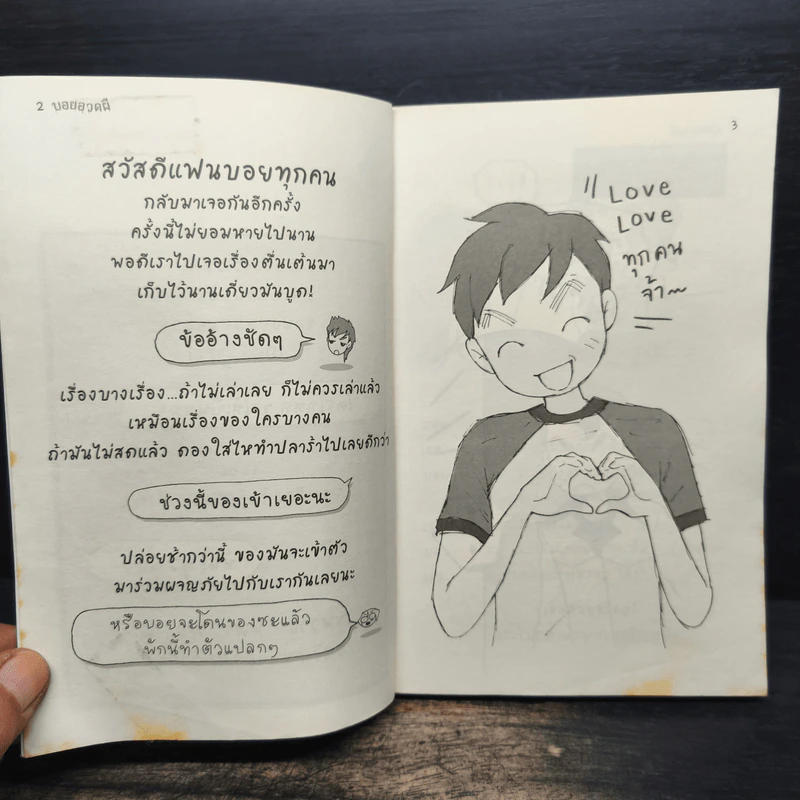 2 บอยอวดผี
สวัสดีแฟนบอยทุกคน
กลับมาเจอกันอีกครั้ง
ครั้งนี้ไม่ยอมหายไปนาน
พอดีเราไปเจอเรื่องตื่นเต้นมา
เก็บไว้นานเดี๋ยวมันบูด!
ข้ออ้างชัดๆ
เรื่องบางเรื่อง...ถ้าไม่เล่าเลย ก็ไม่ควรเล่าแล้ว
เหมือนเรื่องของใครบางคน
ถ้ามันไม่สดแล้ว ดองใส่ไหทำปลาร้าไปเลยดีกว่า
ช่วงนี้ของเข้าเยอะนะ
ปล่อยช้ากว่านี้ ของมันจะเข้าตัว
มาร่วมผจญภัยไปกับเรากันเลยนะ
หรือบอยจะโดนของซะแล้ว
พักนี้ทำตัวแปลกๆ
3
Love
Love
ทุกคน
จ้า~